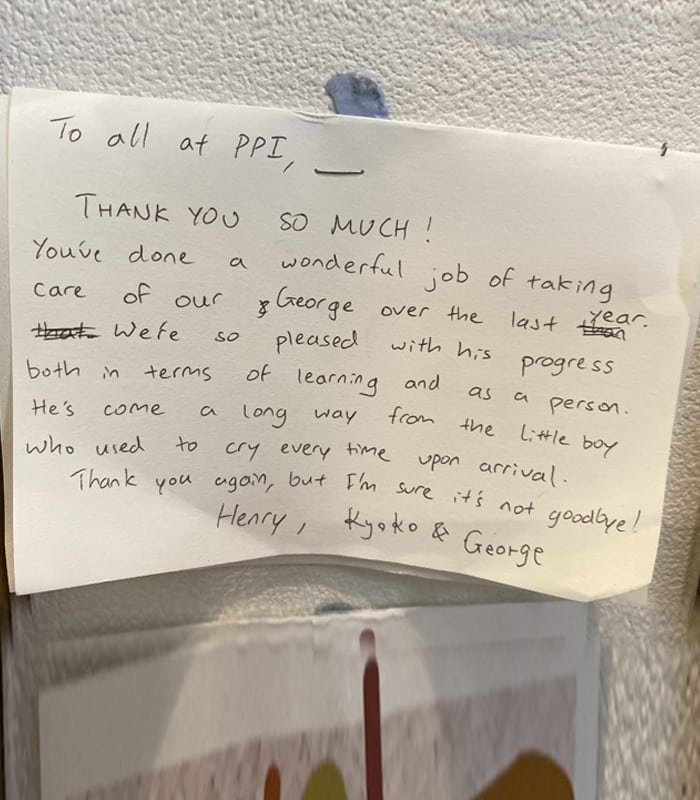 To all at PPI,
THANK YOU SO MUCH!
You've done a wonderful job of taking
care of our George over the last year.
We're so pleased with his progress
both in terms of learning and as a person.
He's come a long way from the little boy
who used to cry every time upon arrival.
Thank you again, but I'm sure it's not goodbye!
Henry, Kyoko & George